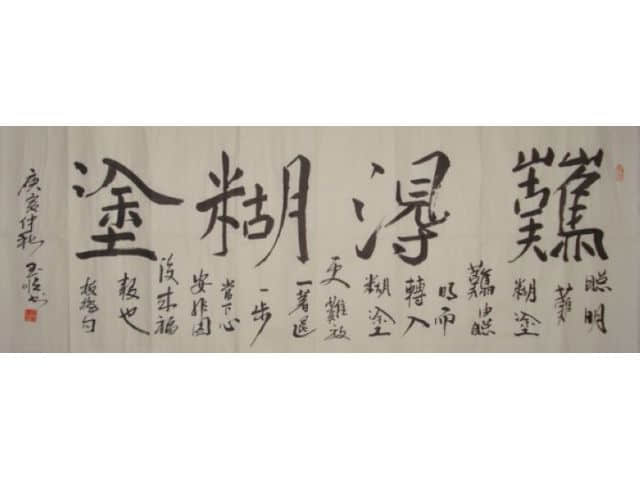 難得糊塗
聰明
難
糊塗
難由聰
明而
轉入
糊塗
更難放
一著退
一步
當下心
安非圖
後來福
報也
板橋句